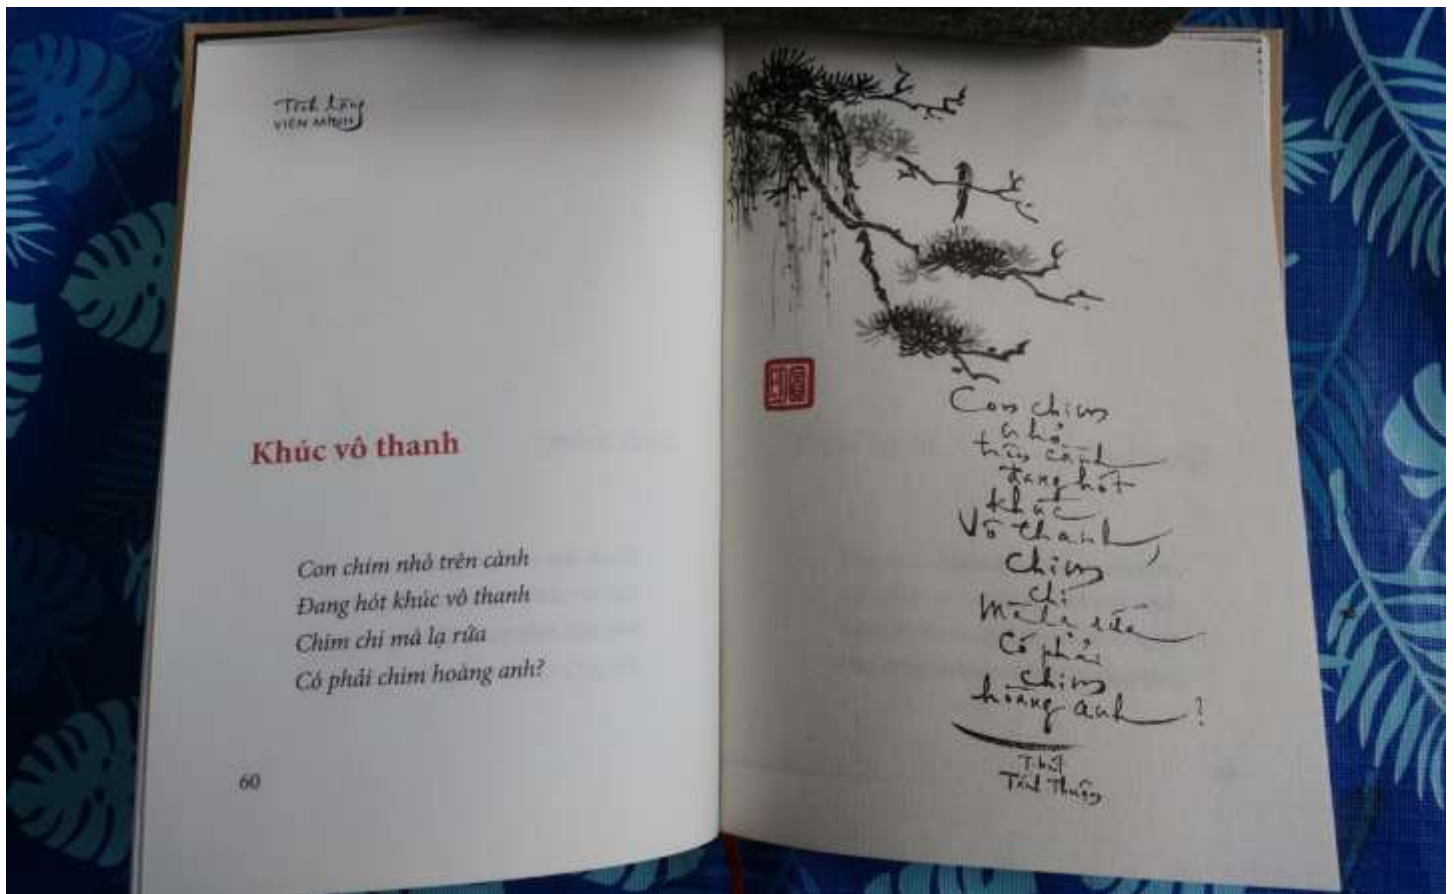 VIÊN MINH
Khúc vô thanh
Con chim nhỏ trên cành
Đang hót khúc vô thanh
Chim chi mà lạ rứa
Có phải chim hoàng anh?
60
Con chim
nhỏ
trên cành
đang hót
khúc
Vô thanh,
Chim
chi
Mà lạ rứa
Có phải
chim
hoàng anh?